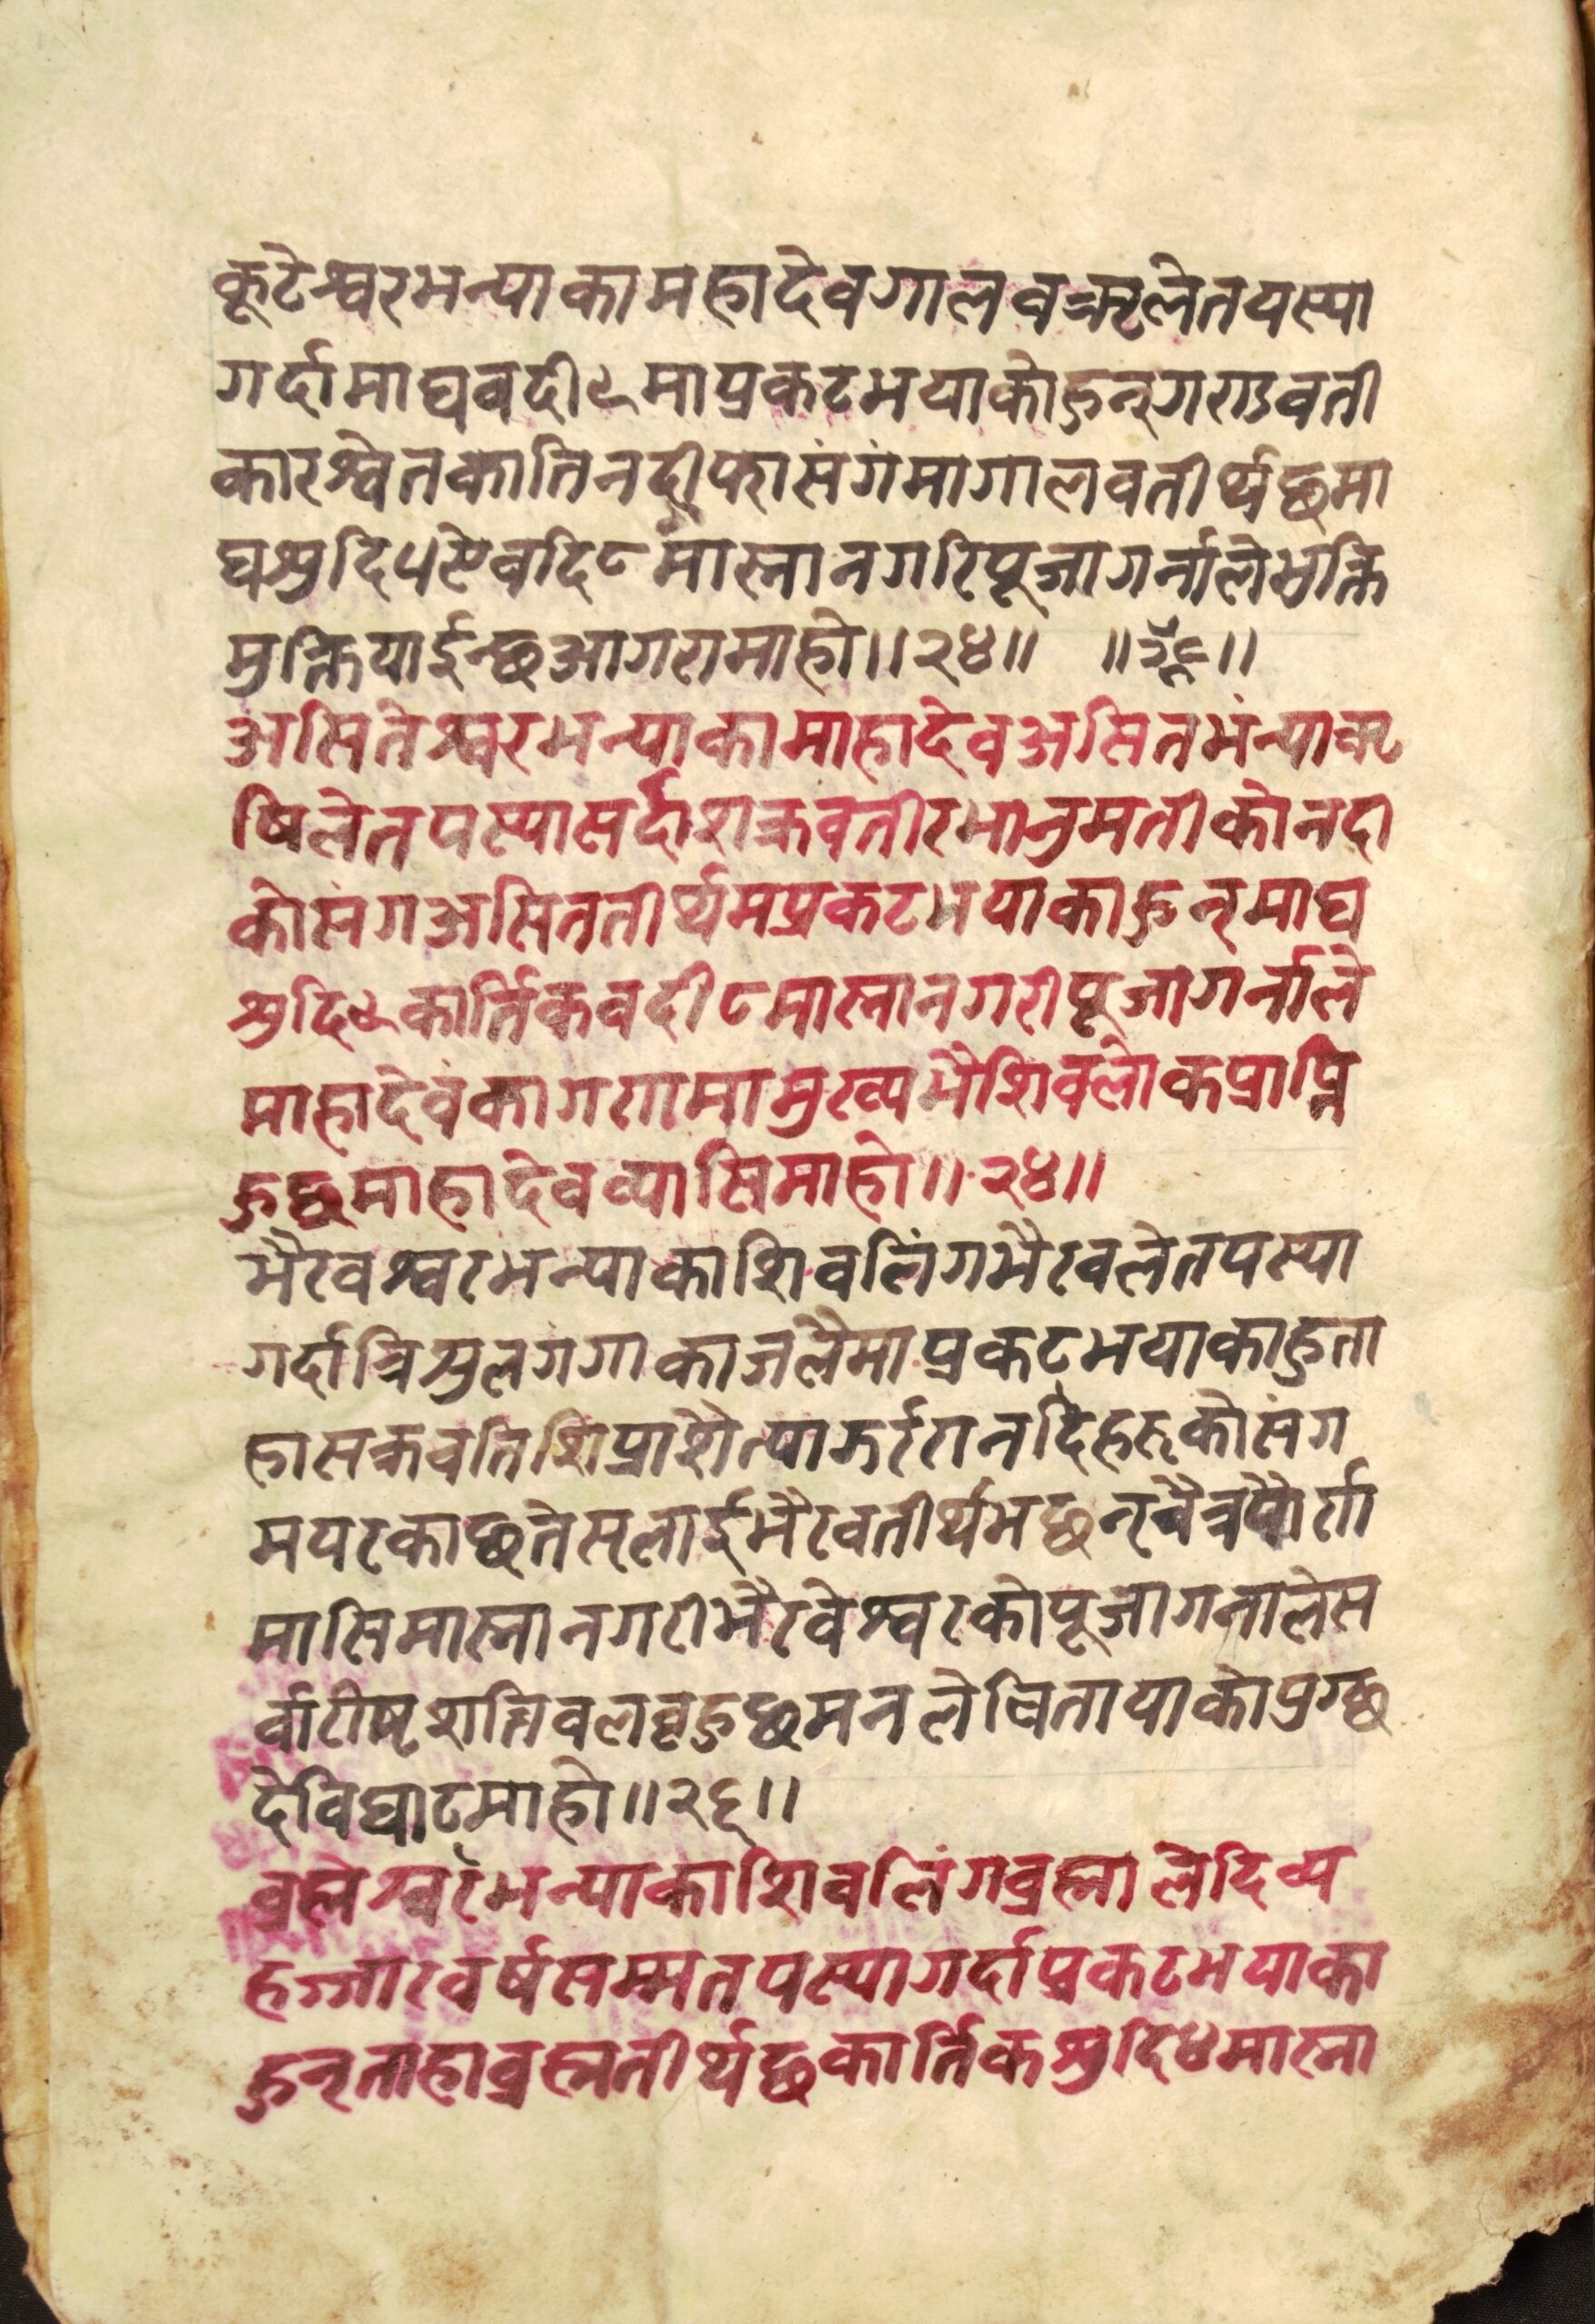 कूटेश्वरभन्याका महादेव गालव ऋलेतपस्या
गर्दा माघवदी ९ मा प्रकट भयाको हुन् गराडवती
कारश्वेत कातिनदीफासंगंमा गालवतीर्थ छ मा
घश्रुदि ५ रवदि ८ मा स्नानगरिपूजागर्नाले भुक्ति
मुक्तिपाईन्छ आगरामाहो ॥ २४ ॥ ॥ ॥
असितेश्वरभन्याका माहादेव असितभंन्या ऋ
षिलेतपस्यासर्दा शक्रवतीर भानुमतीकोनदी
कोसंग असिततीर्थमप्रकटभयाका हुन् माघ
श्रुदि ९ कार्तिकवदी ८ मा स्नानगरीपूजागर्नाले
माहादेवंका गरगामामुख्यभै शिवलोकप्राप्ति
हुछ माहादेवव्यासिमाहो ॥ २४ ॥
भैरवश्वरभन्याका शिवलिंग भैरवलेतपस्या
गर्दा त्रिसुलगंगाकाजलैमा प्रकटभयाका हुता
हासक्रवति शिप्राशैत्याझर्रर्रानदिहरूकोसंग
मपरकाछतेस्लाई भैरवतीर्थभछन् चैत्रपौर्रा
मासिमा स्नानगरी भैरवेश्वरकोपूजागनालेस
र्वारीष्टशान्तिवलवृहुछ मनलेचितायाकोप्रग्छ
देविघाटमाहो ॥ २६ ॥
व्रह्मेश्वरंभन्याका शिवलिंग व्रह्मालेदिव्य
हज्जारवर्षसम्मतपस्यागर्दा प्रकटभयाका
हुन् ताहाव्रह्मतीर्थ छ कार्तिकश्रुदि ४ मा स्ना